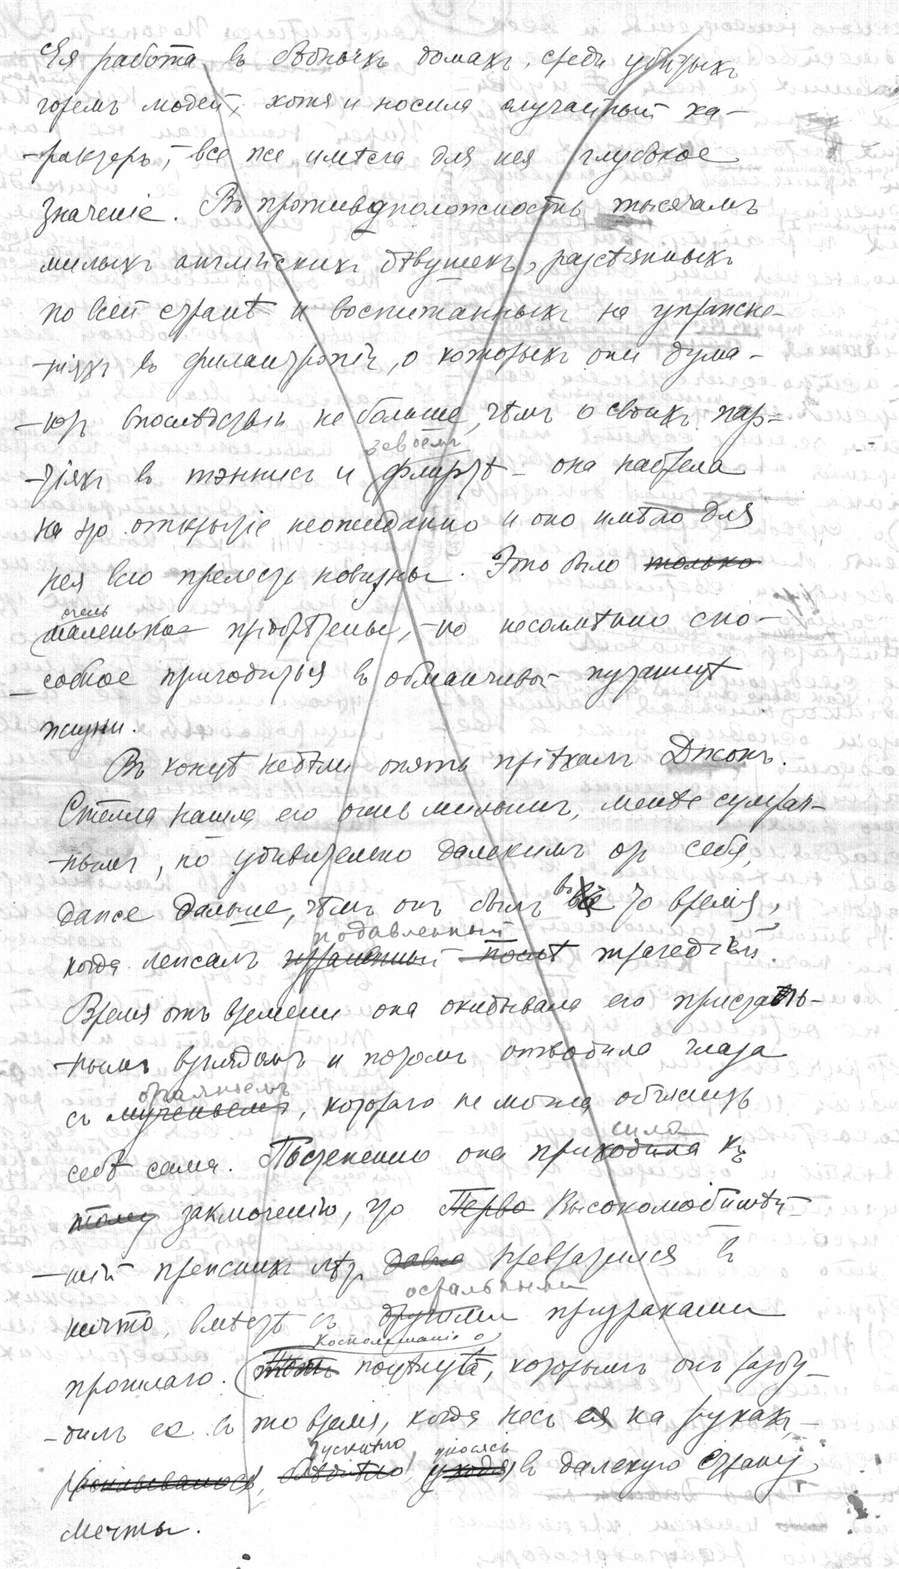 Ея работа въ бѣдныхъ домахъ, среди убитыхъ
горемъ людей, хотя и носила случайный ха-
-рактеръ, все же имѣла для нея глубокое
значеніе. Въ противуположность тысячамъ
милыхъ англійскихъ дѣвушекъ, разсѣянныхъ
по всей странѣ и воспитанныхъ на упражне-
-ніяхъ въ филантропіи, о которыхъ они дума-
-ютъ впослѣдствіи не больше, чѣмъ о своихъ пар-
своемъ
-тіяхъ въ тэннисъ и флиртѣ – она набрела
на это открытіе неожиданно и оно имѣло для
нея всю прелесть новизны. Это было только
очень
маленькое пріобрѣтенье, но несомнѣнно спо-
-собное пригодиться въ обманчивой путаницѣ
жизни.
Въ концѣ недѣли опять пріѣхалъ Джонъ.
Стелла нашла его очень милымъ, менѣе сумрач-
-нымъ, но удивительно далекимъ отъ себя,
даже дальше, чѣмъ онъ былъ во все то время,
подавленный
когда лежалъ послѣ трагедіей.
Время отъ времени она окидывала его присталь-
-нымъ взглядомъ и потомъ отводила глаза
отчаяньемъ
съ мученьемъ, котораго не могла объяснить
себѣ сама. Постепенно она приходила къ
шла
тому заключенію, что Перво Высоколюбимѣй-
-шій прежнихъ лѣтъ давно превратился въ
остальными
нѣчто, вмѣстѣ съ другими призраками
Воспоминаніе о
прошлаго. Тѣнь поцѣлуѣ, которымъ онъ разбу-
-дилъ ее въ то время, когда несъ ея на рукахъ,
тускнѣло, уносясь
уходя въ далекую страну
мечты.